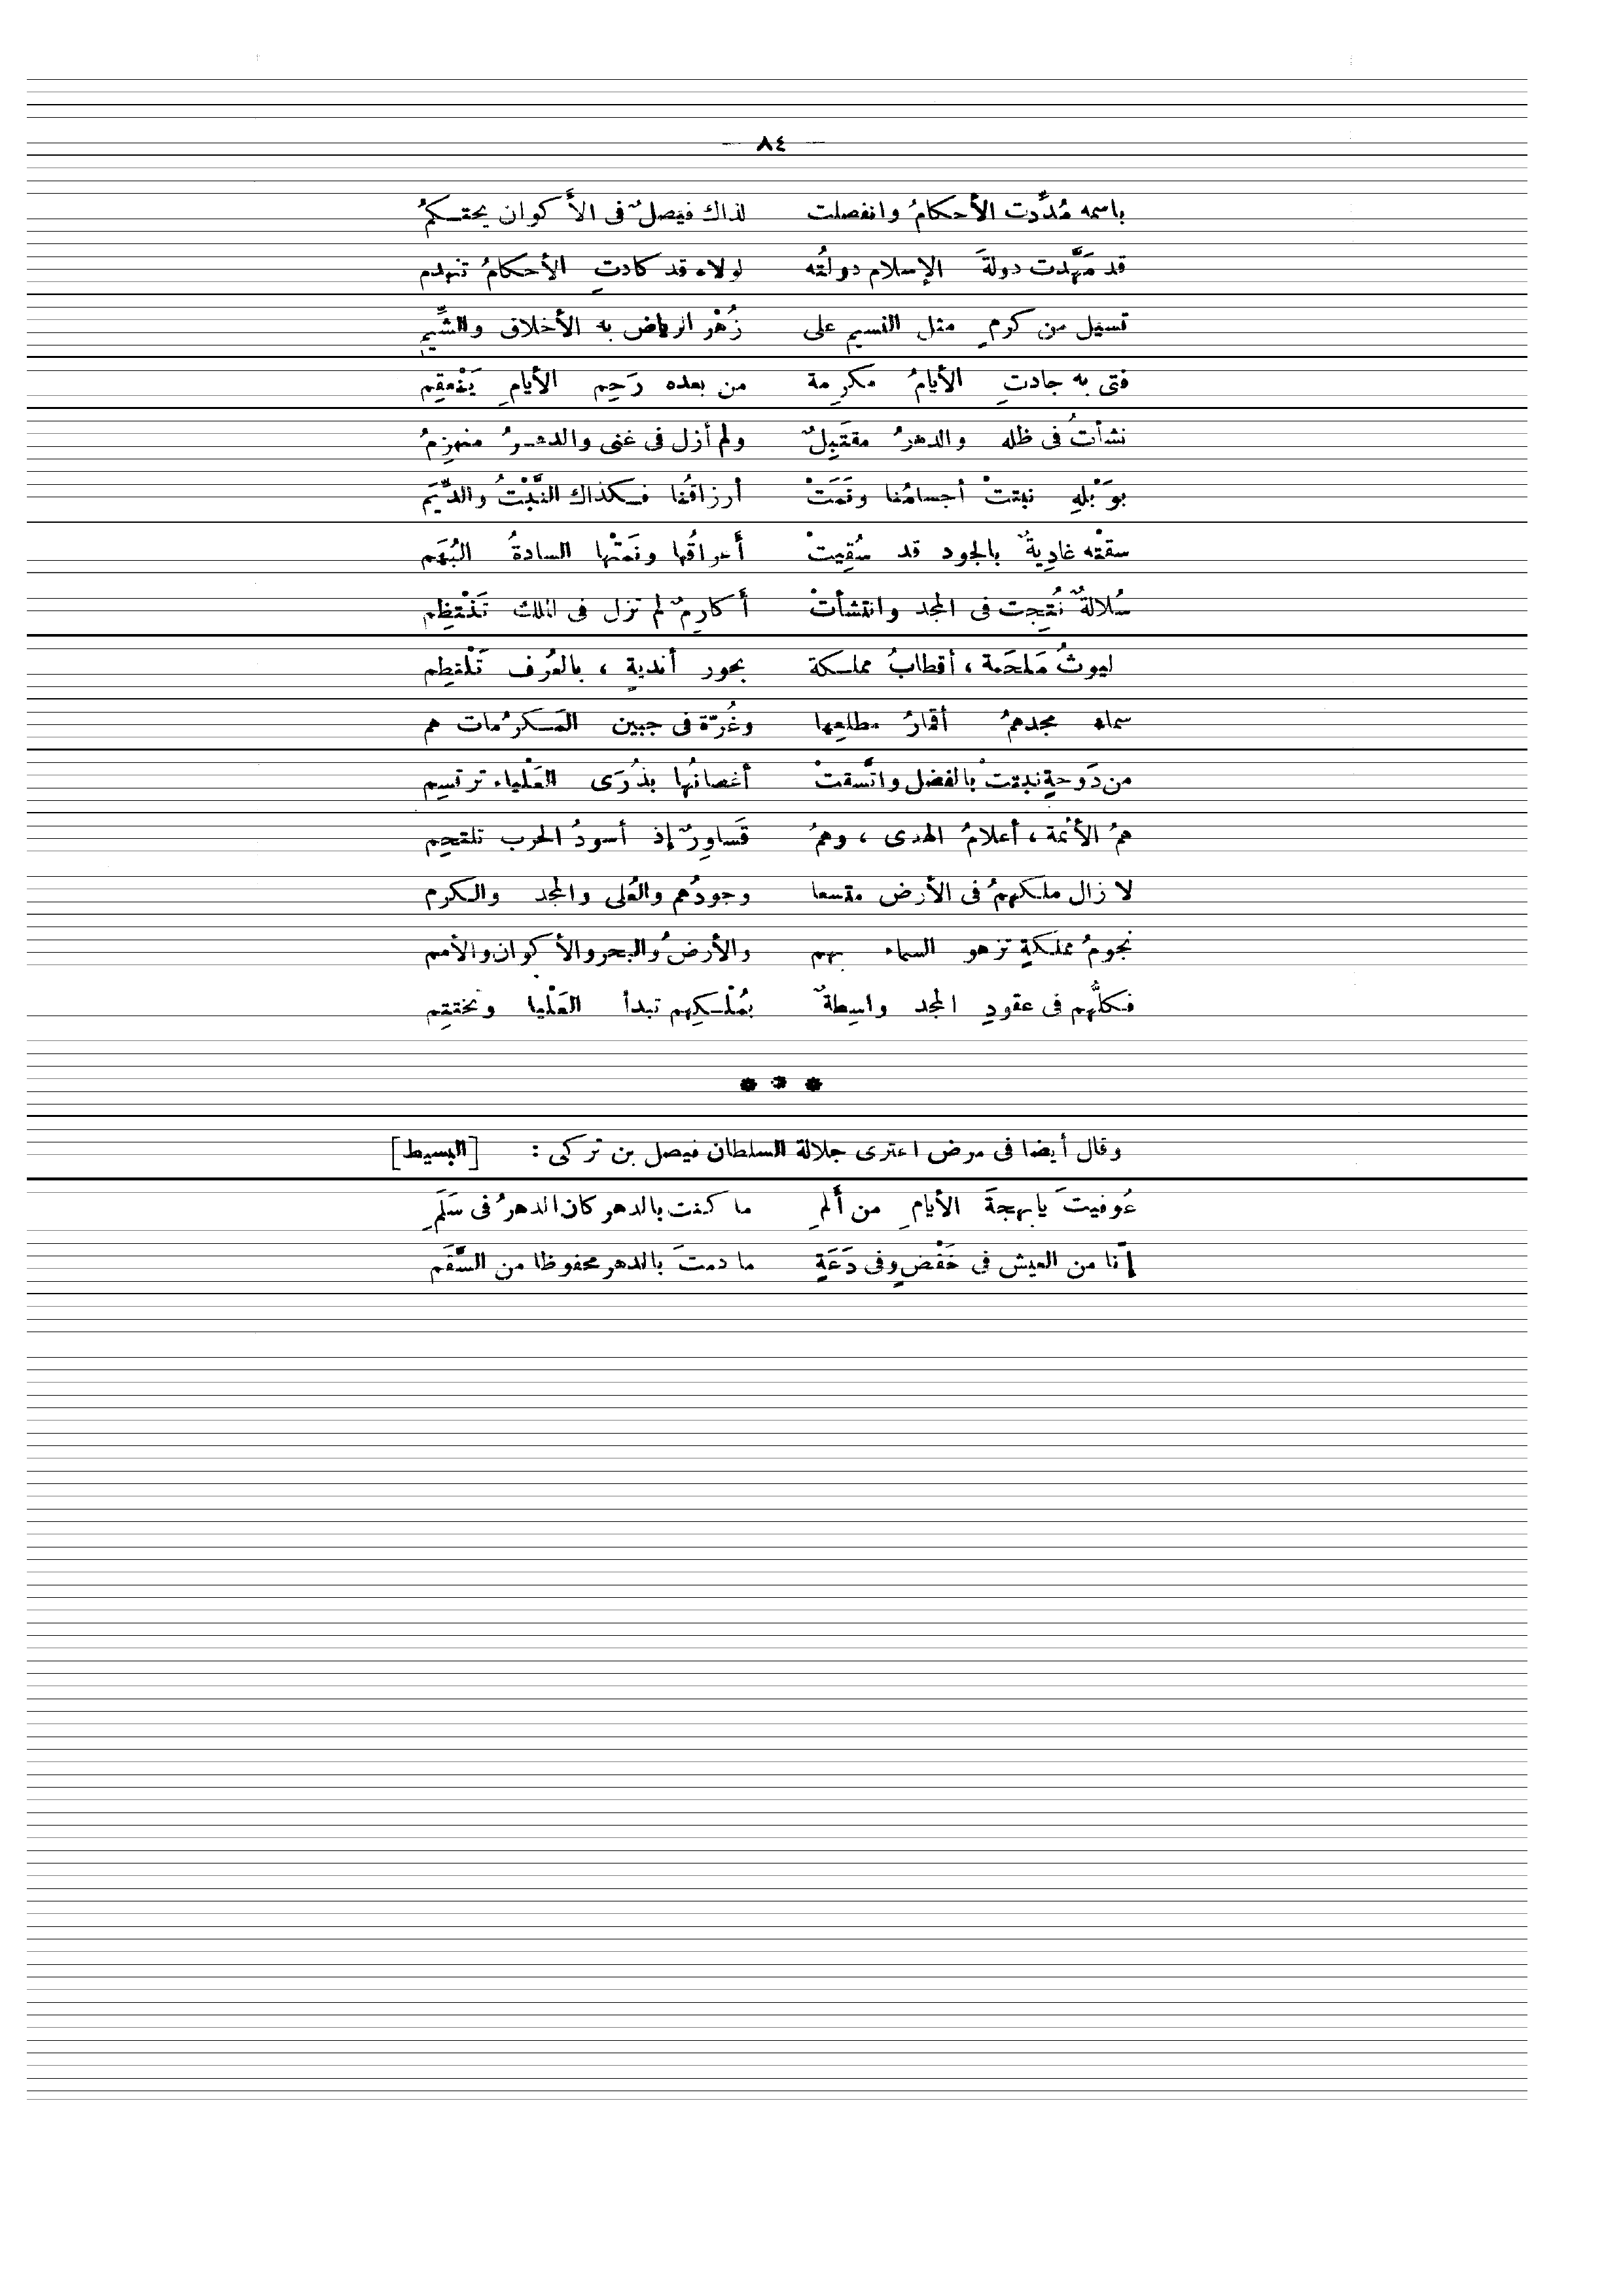 — ٨٤ —
باسمه مُدِّدت الأحكامُ وانفصلت لذاك فيصلٌ فى الأَكوان يحتكمُ
قد مَهَّدت دولةَ الإسلام دولتُه لولاه قد كادتِ الأحكامُ تنهدم
تسيل من كرمٍ مثل النسيم على زُهْر الرياض به الأخلاق والشِّيم
فتى به جادتِ الأيامُ مكرِمة من بعده رَحِم الأيامِ يَنْعقِم
نشأتُ فى ظله والدهرُ مقتَبِلٌ ولم أزل فى غنى والدهرُ منهزِمُ
بوَبْلهِ نبتتْ أجسامُنا ونَمَتْ أرزاقُنا فكذاك النَّبْتُ والدِّيَم
سقتْه غادِيةٌ بالجود قد سُقِيتْ أَعراقُها ونَمَتْها السادةُ البُهَم
سُلالةٌ نُتِجت فى المجد وانتشأتْ أَكارِمٌ لم تزل فى الملك تَنْتظِم
ليوثُ مَلحَمة ، أقطابُ مملكة بحور أنديةٍ ، بالعُرف تَلْتطِم
سماء مجدهمُ أقمارُ مطلعِها وغُرّة فى جبين المَكرُمات هم
من دَوحةٍ نبتتْ بالفضل واتَّسقتْ أغصانُها بذُرَى العَلْياء ترتسِم
همُ الأئمة ، أعلامُ الهدى ، وهمُ قَساوِرٌ إذ أسودُ الحرب تلتحِم
لا زال ملكهمُ فى الأرض متسعا وجودُهم والعُلى والمجد والكرم
نجومُ مملكةٍ تزهو السماء بهم والأرضُ والبحر والأكوان والأمم
فكلُّهم فى عقودِ المجد واسِطةٌ بمُلْكِهم تبدأ العَلْيا وتختتِم
* * *
وقال أيضا فى مرض اعترى جلالة السلطان فيصل بن تركى : [البسيط]
عُوفيتَ يا بهجةَ الأيامِ من أَلمِ ما كنت بالدهر كان الدهرُ فى سَلَمِ
إنّا من العيش فى خَفْضٍ وفى دَعَةٍ ما دمتَ بالدهر محفوظا من السَّقَم